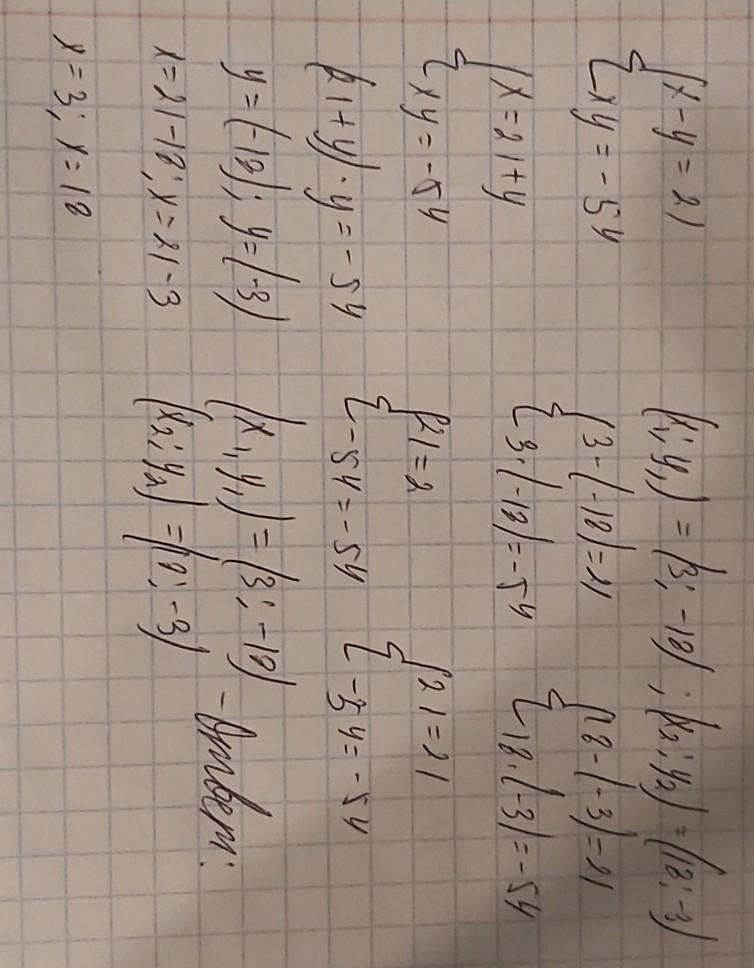 { x - y = 21
{ xy = -54
{ x = 21 + y
{ xy = -54
(21 + y) · y = -54
y = (-18); y = (-3)
x = 21 - 18; x = 21 - 3
x = 3; x = 18
(x₁; y₁) = (3; -18); (x₂; y₂) = (18; -3)
{ 3 - (-18) = 21 { 18 - (-3) = 21
{ 3 · (-18) = -54 { 18 · (-3) = -54
{ 21 = 2 { 21 = 21
{ -54 = -54 { -54 = -54
(x₁, y₁) = (3; -18)
(x₂; y₂) = (18; -3) - Ответ: